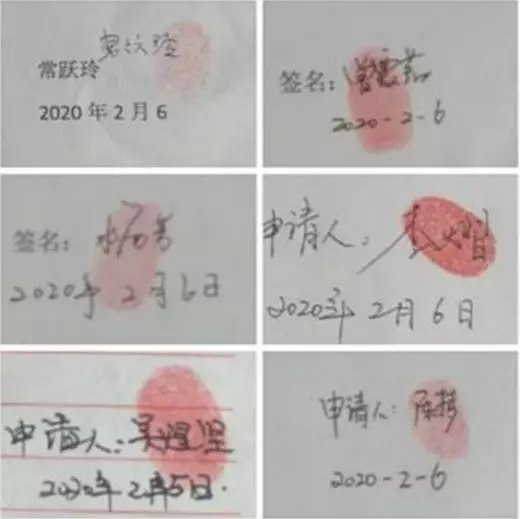 常跃玲
2020 年 2 月 6
签名：
2020-2-6
签名：
2020年 2月6日
申请人：
2020年 2月 6日
申请人：吴煌坚
2020年2月5日.
申请人：陈静
2020-2-6